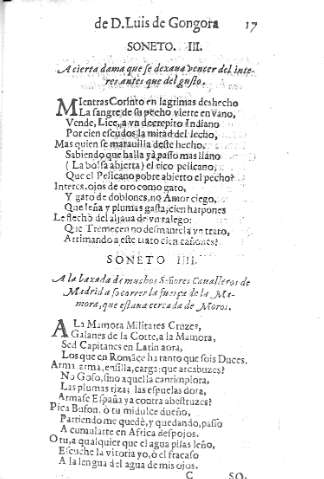 de D. Luis de Gongora 17
SONETO. III.
A cierta dama que se dexaua vencer del inte-
res antes que del gusto.
MIentras Corinto en lagrimas deshecho
La sangre de su pecho vierte en vano,
Vende, Lice, a vn decrepito Indiano
Por cien escudos la mitad del lecho,
Mas quien se marauilla deste hecho,
Sabiendo que halla ya passo mas llano
(La bolsa abierta) el rico pelicano,
Que el Pelicano pobre abierto el pecho?
Interes, ojos de oro como gato,
Y gato de doblones, no Amor ciego,
Que leña y plumas gasta, cien harpones
Le flechò del aljaua de vn talego:
Que Tremecen no desmantela vn trato,
Arrimando a este trato cien cañones?
SONETO IIII.
A la baxada de muchos Señores Caualleros de
Madrid a socorrer la fuerça de la Ma-
mora, que estaua cercada de Moros.
A La Mamora Militares Cruzes,
Galanes de la Corte, a la Mamora,
Sed Capitanes en Latin aora,
Los que en Romãce ha tanto que sois Duces.
Arma, arma, ensilla, carga: que arcabuzes?
No Goso, sino aquella cantimplora.
Las plumas riza, las espuelas dora,
Armase España ya contra abestruzes?
Pica Bufon. ò tu mi dulce dueño,
Partiendo me quedè, y quedando, passo
A cumularte en Africa despojos.
O tu, a qualquier que el agua pisas leño,
Escuche la vitoria yo, ò el fracaso
A la lengua del agua de mis ojos.
C SO-